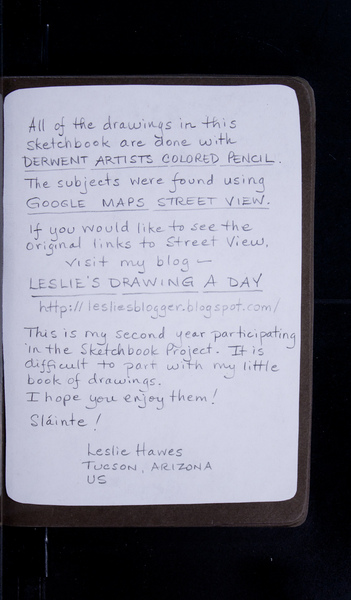 All of the drawings in this
sketchbook are done with
DERWENT ARTISTS COLORED PENCIL.
The subjects were found using
GOOGLE MAPS STREET VIEW.
If you would like to see the
original links to Street View,
visit my blog —
LESLIE'S DRAWING A DAY
http://lesliesblogger.blogspot.com/
This is my second year participating
in the Sketchbook Project. It is
difficult to part with my little
book of drawings.
I hope you enjoy them!
Sláinte!
Leslie Hawes
TUCSON, ARIZONA
US